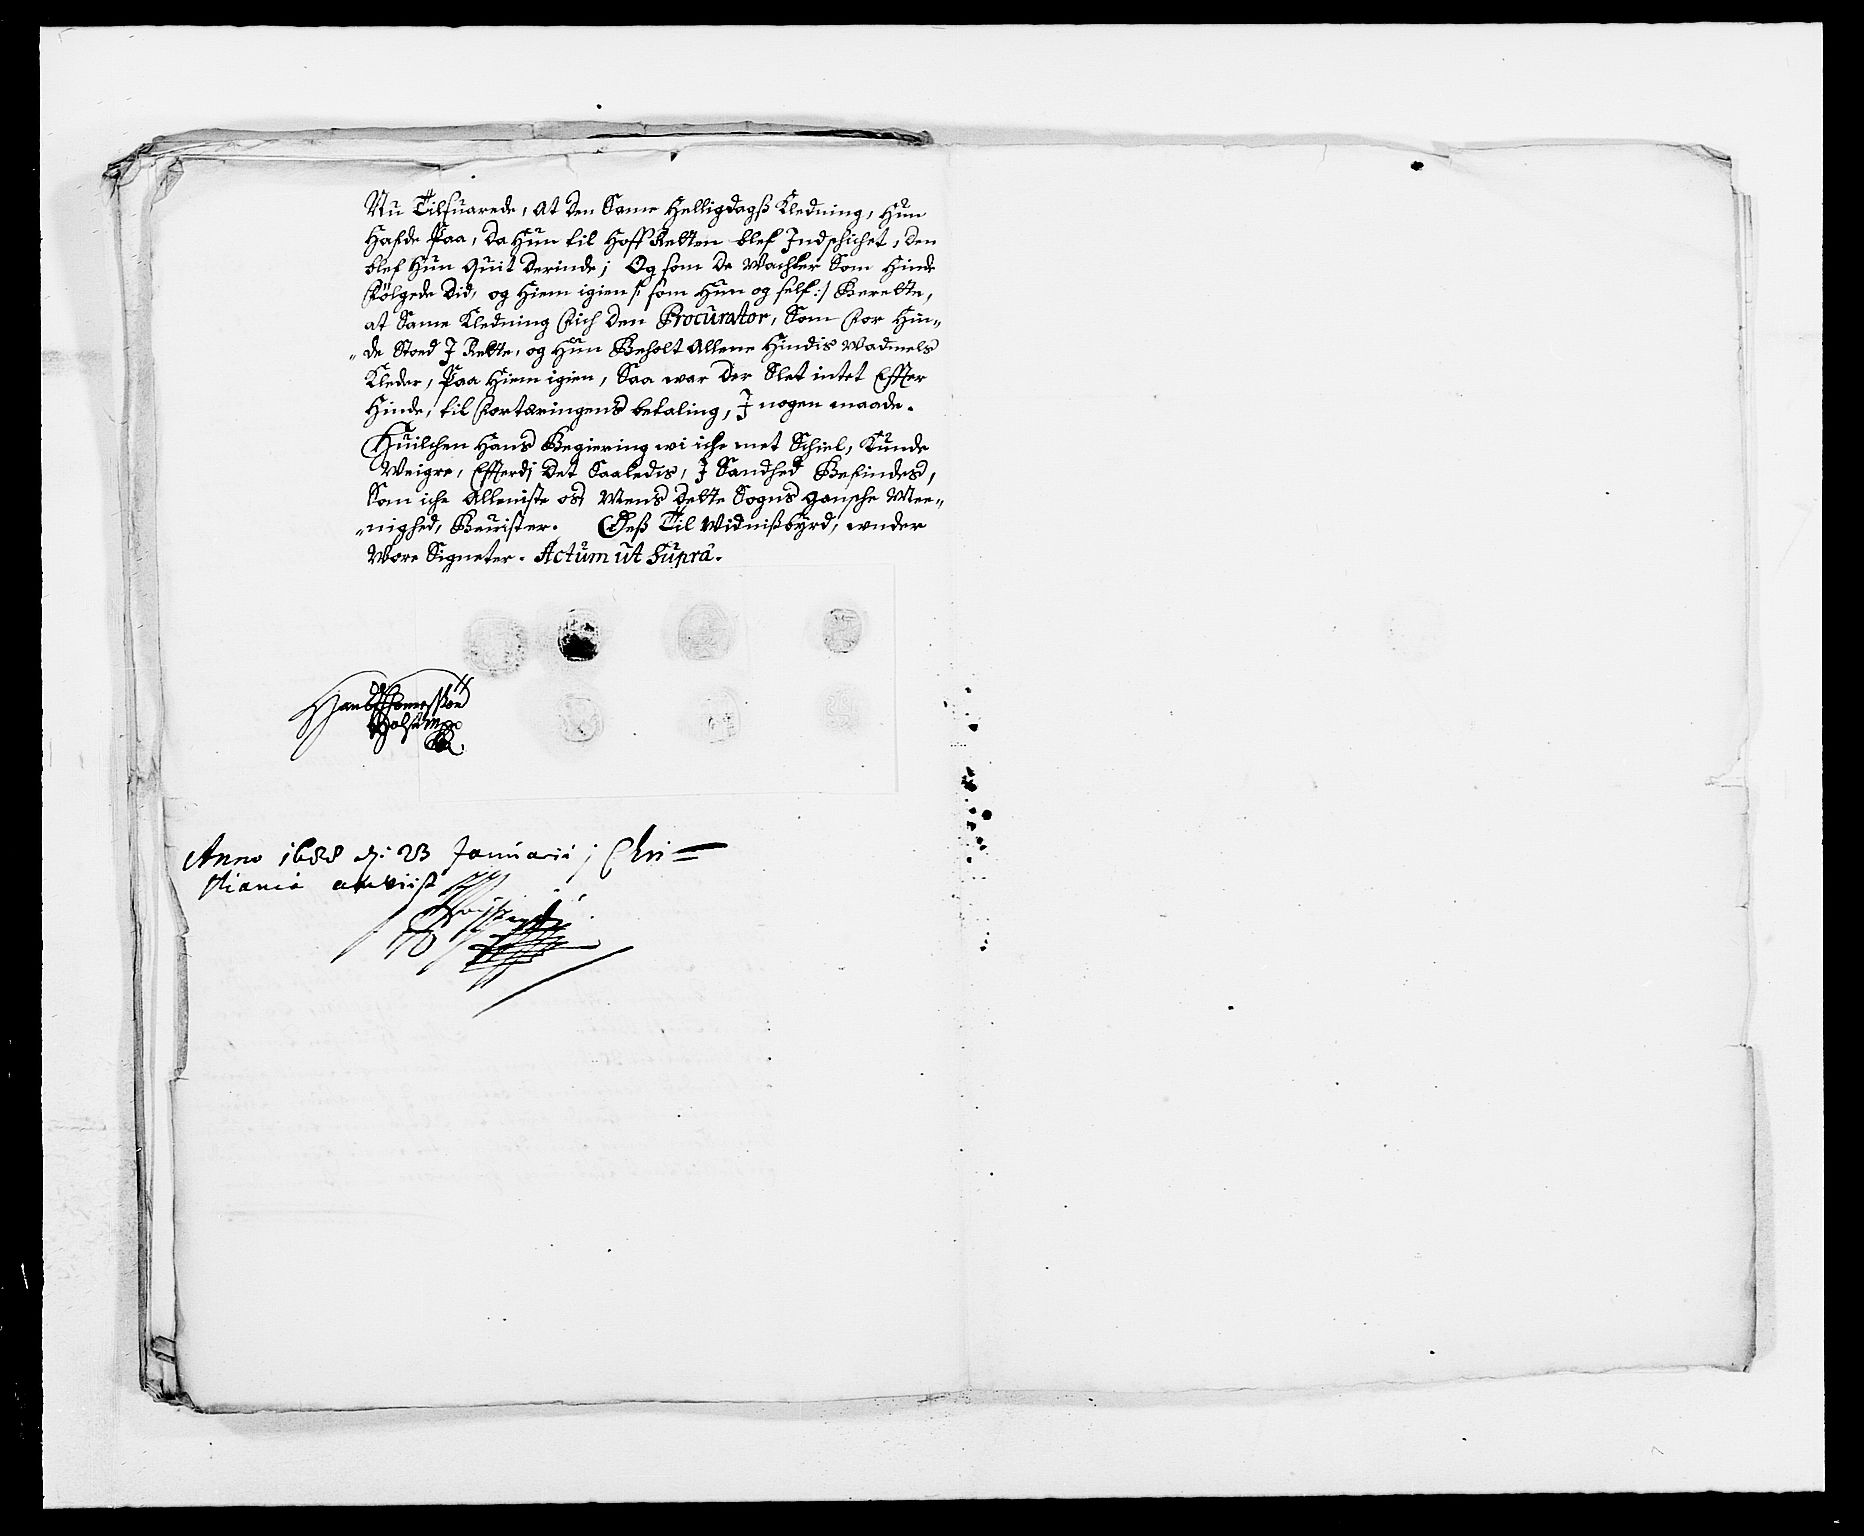 Nu Tilsuarede, at den Same Helligdagß Kledning, Hun
Hafde Paa, da Hun til Hoff Retten blef Indschichet, den
blef Hun quit derinde; Og som de Wachter Som Hinde
fölgede did, og Hiem igien /: som Hun og self :/ Berette,
at Same Kledning fich den Procurator, Som for Hin„
„de Stoed J Rette, og Hun Beholt Allene Hindis Wadmels
Kleder, Paa Hiem igien, Saa war der Slet intet Effter
Hinde, til fortæringens betaling, J nogen maade.
Huilchen Hans Begiering wi iche met Schiel, Kunde
Weigre, Efterdj det Saaledis, J Sandhed Befindes,
Som iche Alleniste os Mens dette Sogns gansche Mee„
„nighed, Beuister. Deß Til Widnißbyrd, wnder
Wore Signeter. Actum ut Supra.
Hans
Holst
Anno 1688 d: 23 Januarii i Chri=
stiania